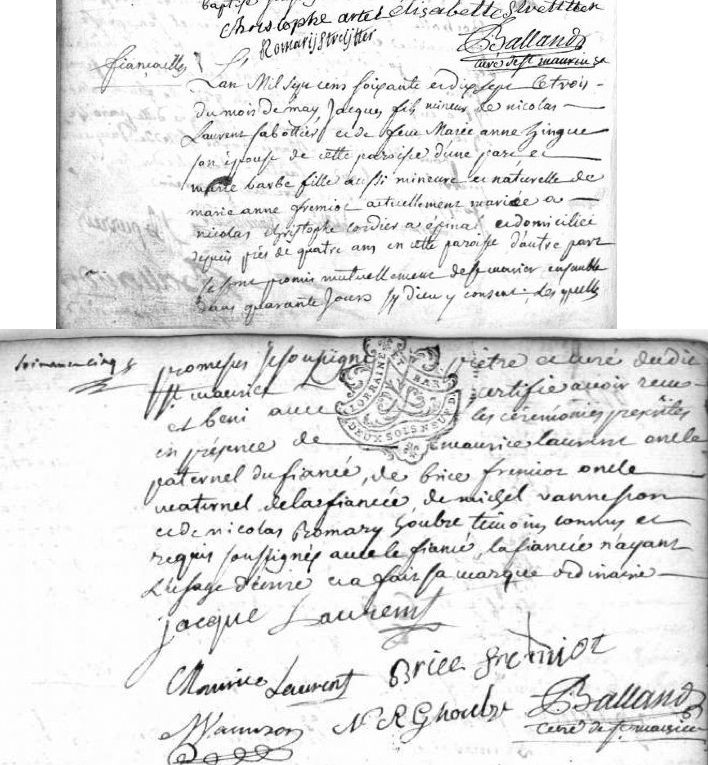 baptisé
Christophe artel Elisabette
Romarij Streijtter
Balland
curé de st maurice
fiancailles
L'an Mil sept cens soixante et dix sept Le trois
du mois de may, Jacques fils mineur de nicolas
Laurent sabottier, et de feüe Marie anne Zingue
son épouse de cette paroisse d'une part et
marie barbe fille aussi mineure et naturelle de
marie anne fremiot actuellement mariée a
nicolas Christophe cordier a épinal et domiciliée
depuis près de quatre ans en cette paroisse d'autre part
se sont promis mutuellement de se marier ensemble
dans quarante Jours sy dieu y consent; des quelles
soixante cinq
promesses Je soussigné pretre et curé dudit
st maurice certifie avoir recus
et beni avec les cérémonies prescrites
en présence de maurice laurent oncle
paternel du fiancé, de brice fremiot oncle
maternel de la fiancée de michel vannesson
et de nicolas Romary Goubre témoins connus et
requis soussignés avec le fiancé, la fiancée n'ayant
L'usage d'écrire et a fait sa marque ordinaire
LORRAINE ET BAR
DEUX SOLS NEUF D
jacque Laurent
Maurice Laurent Brice fremiot
M Vannson N R Ghoubre Balland
curé de st maurice